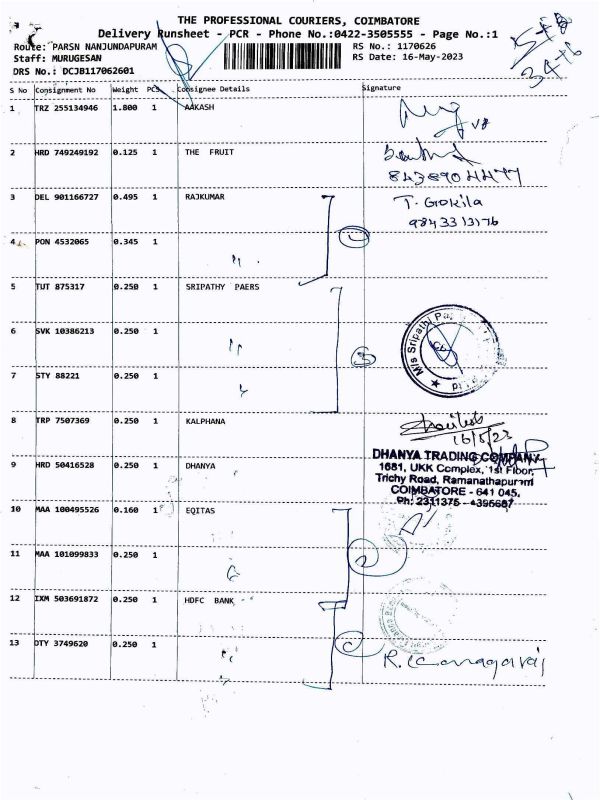 THE PROFESSIONAL COURIERS, COIMBATORE
Delivery Runsheet - PCR - Phone No.:0422-3505555 - Page No.:1
Route: PARSN NANJUNDAPURAM RS No.: 1170626
Staff: MURUGESAN RS Date: 16-May-2023
DRS No.: DCJB117062601
S No Consignment No Weight PCS Consignee Details Signature
1 TRZ 255134946 1.800 1 AAKASH
2 HRD 749249192 0.125 1 THE FRUIT
3 DEL 901166727 0.495 1 RAJKUMAR T. Gokila
9843313176
4 PON 4532065 0.345 1 "
5 TUT 875317 0.250 1 SRIPATHY PAERS
6 SVK 10386213 0.250 1 "
M/s Sripathi
7 STY 88221 0.250 1 "
8 TRP 7507369 0.250 1 KALPHANA
16/5/23
DHANYA TRADING COMPANY
9 HRD 50416528 0.250 1 DHANYA 1681, UKK Complex, 1st Floor,
Trichy Road, Ramanathapuram
COIMBATORE - 641 045.
10 MAA 100495526 0.160 1 EQITAS Ph: 2311375
11 MAA 101099833 0.250 1
12 IXM 503691872 0.250 1 HDFC BANK
13 DTY 3749620 0.250 1 "